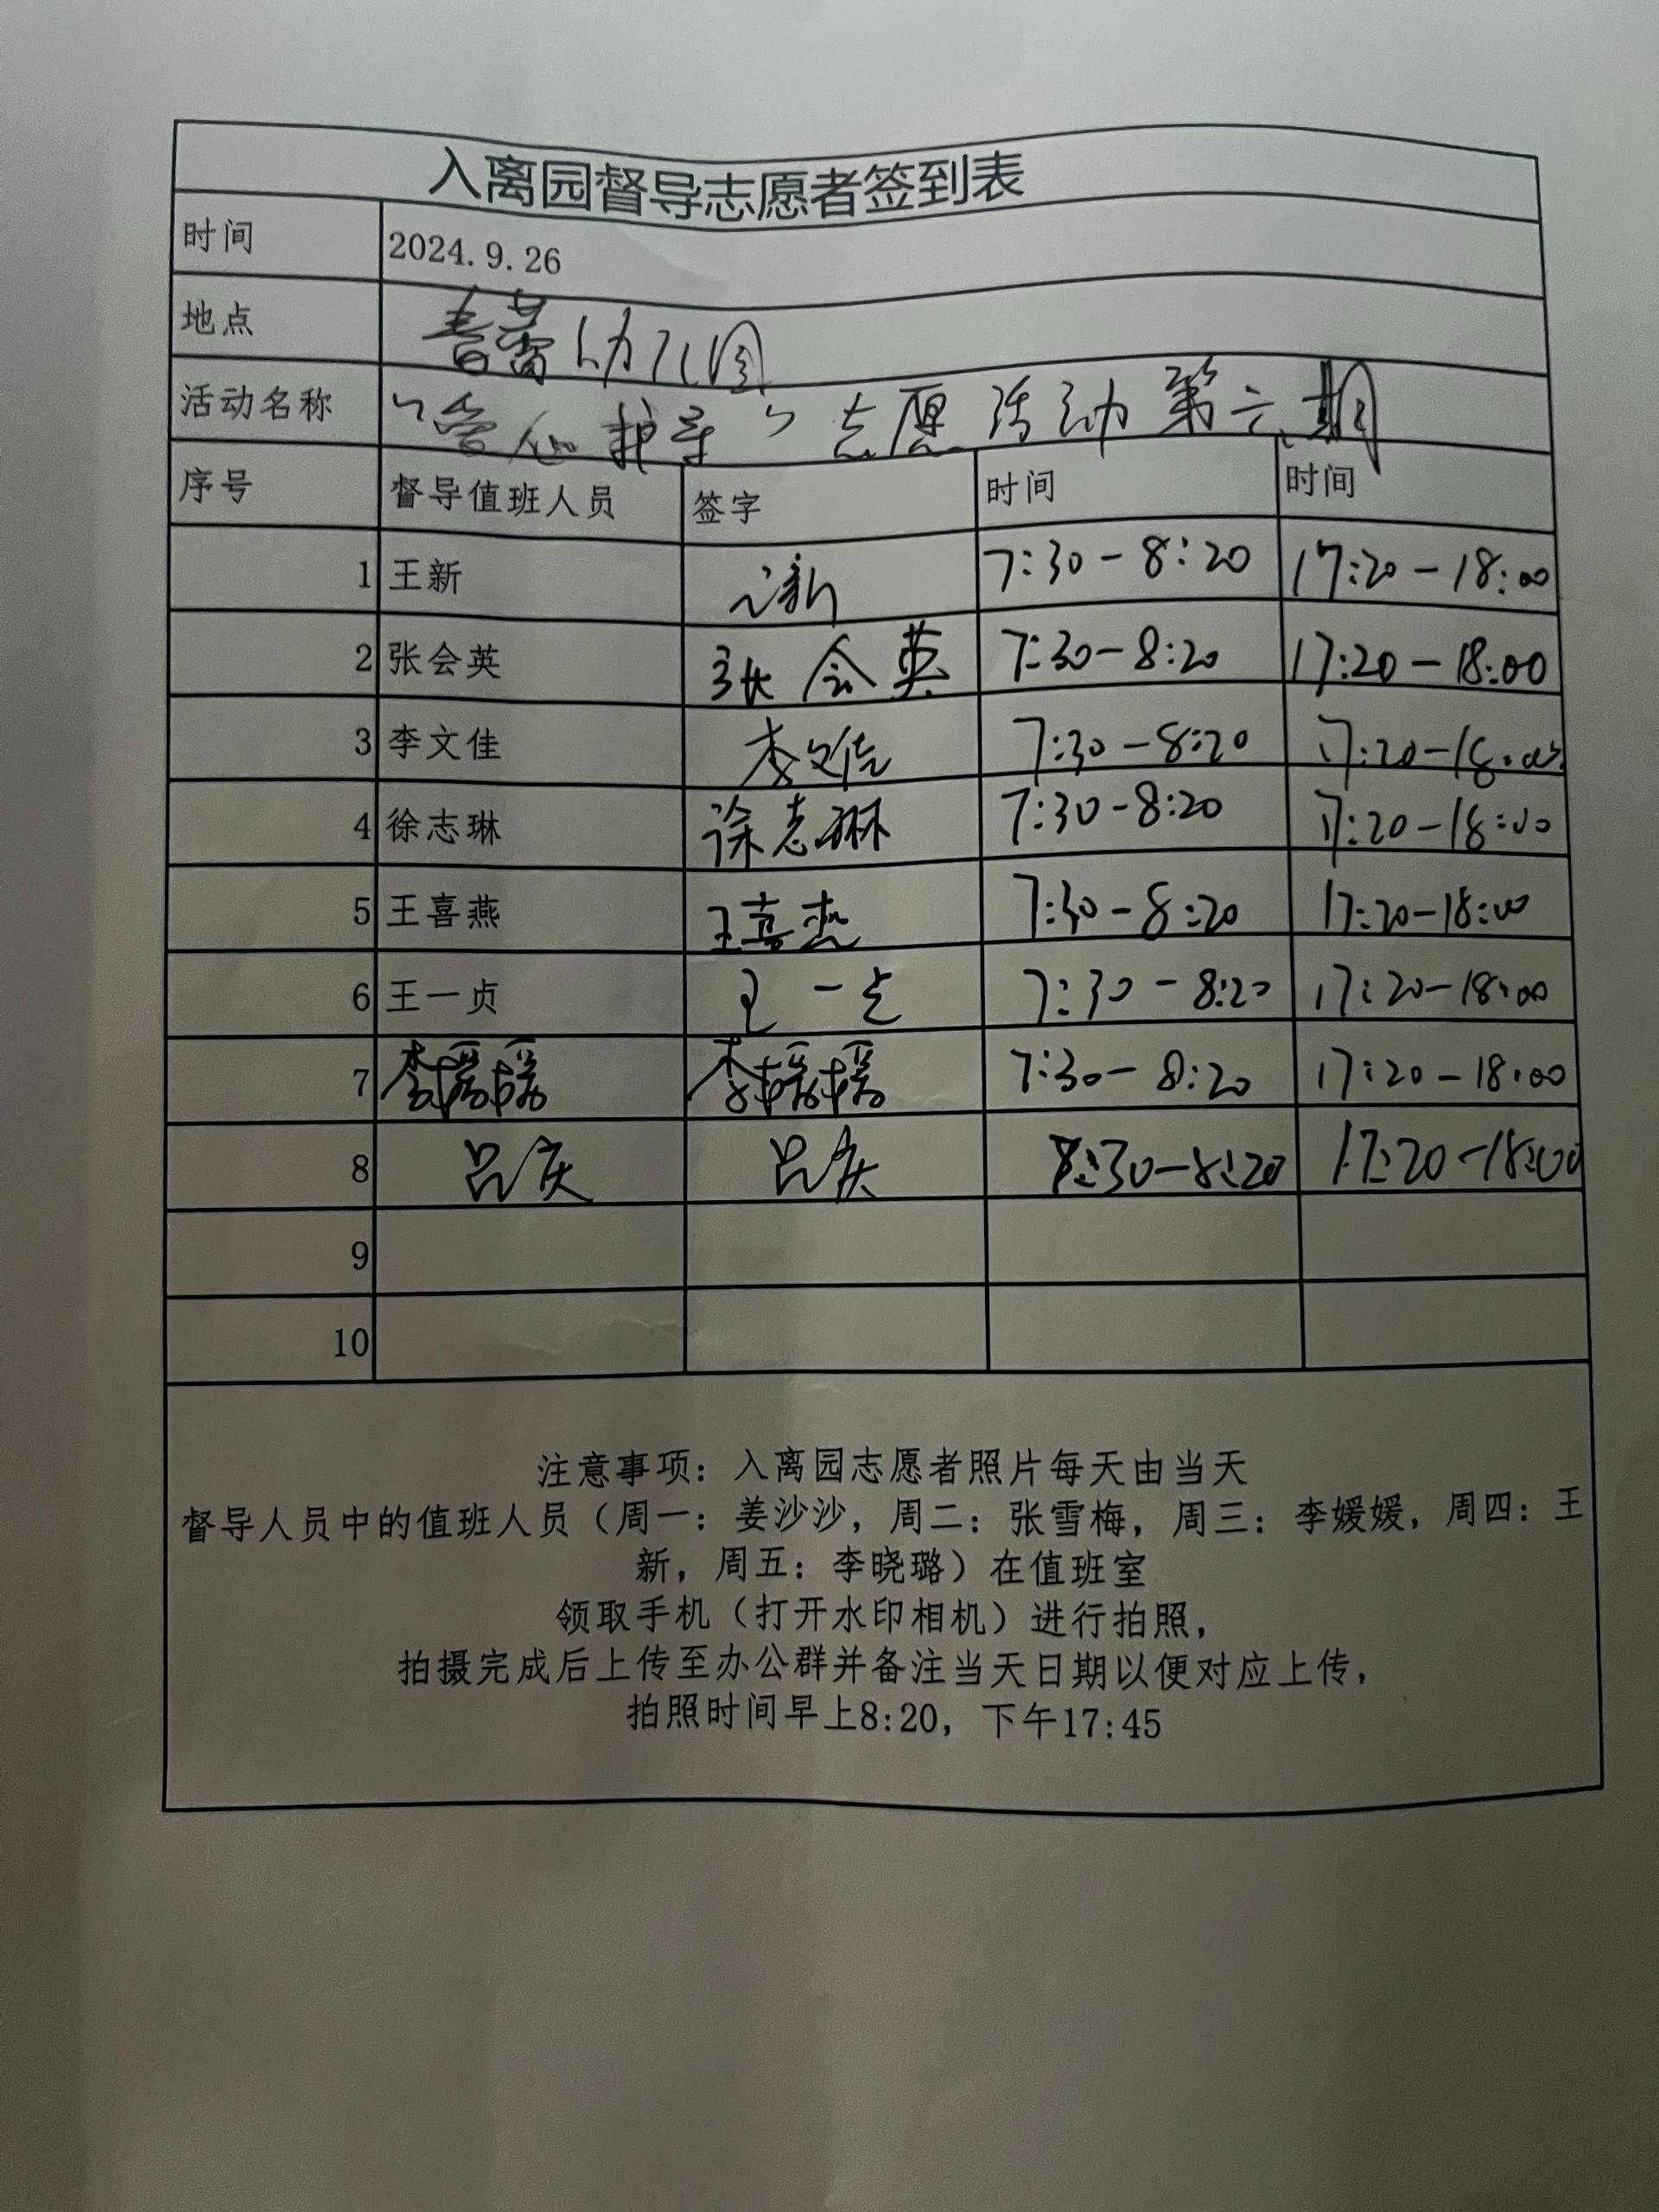 入离园督导志愿者签到表
时间 2024.9.26
地点 春蕾幼儿园
活动名称 “ 心护导”志愿活动第六期
序号 督导值班人员 签字 时间 时间
1 王新 王新 7:30-8:20 17:20-18:00
2 张会英 张会英 7:30-8:20 17:20-18:00
3 李文佳 李文佳 7:30-8:20 17:20-18:00
4 徐志琳 徐志琳 7:30-8:20 17:20-18:00
5 王喜燕 王喜燕 7:30-8:20 17:20-18:00
6 王一贞 王一贞 7:30-8:20 17:20-18:00
7 李媛媛 李媛媛 7:30-8:20 17:20-18:00
8 吕庆 吕庆 7:30-8:20 17:20-18:00
9
10
注意事项：入离园志愿者照片每天由当天
督导人员中的值班人员（周一：姜沙沙，周二：张雪梅，周三：李媛媛，周四：王
新，周五：李晓璐）在值班室
领取手机（打开水印相机）进行拍照，
拍摄完成后上传至办公群并备注当天日期以便对应上传，
拍照时间早上8:20，下午17:45